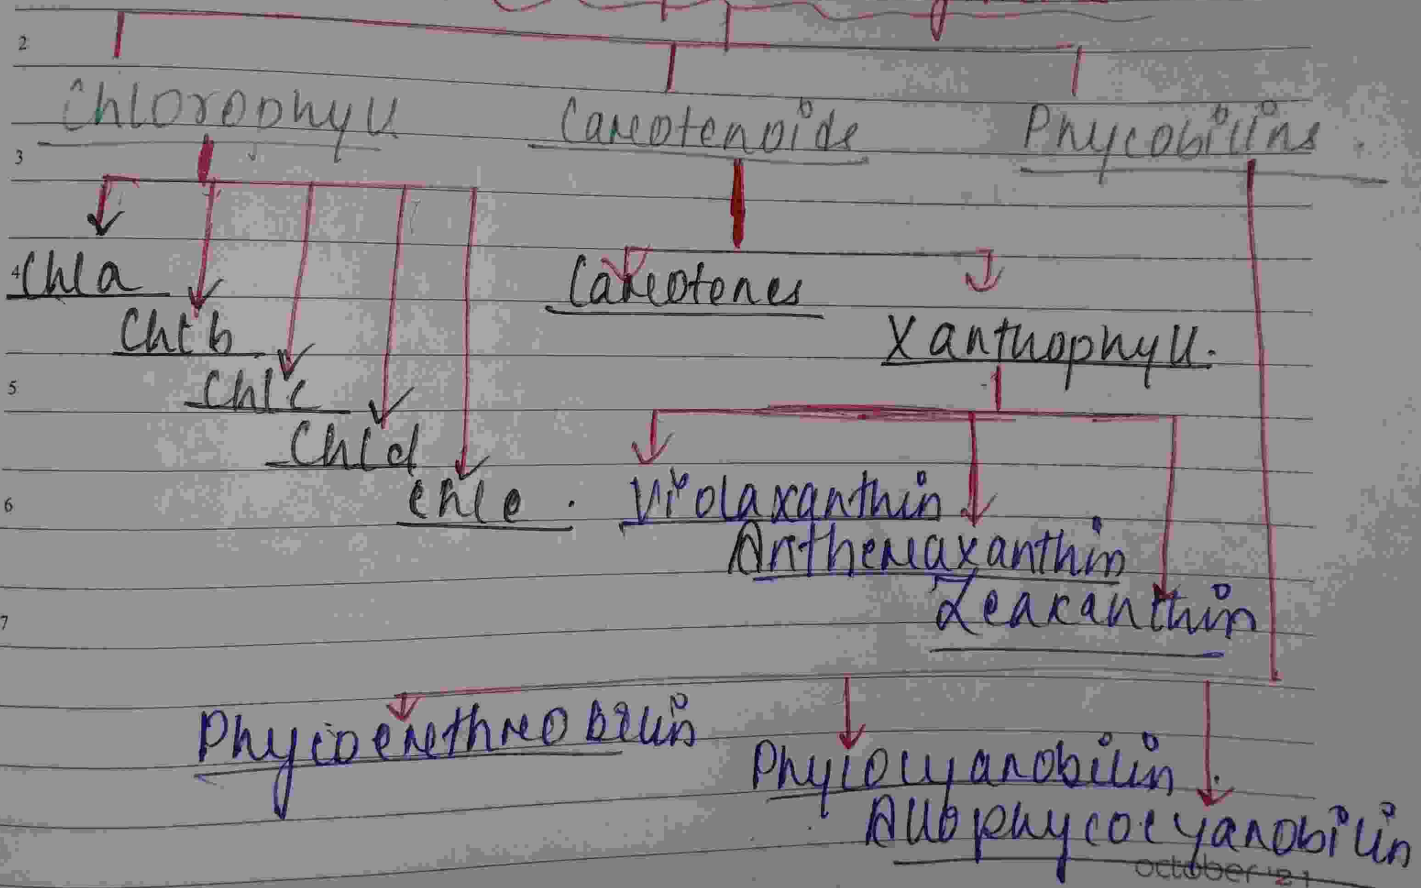 2
Chlorophyll Carotenoids Phycobilins
3
4 Chl a Carotenes
Chl b Xanthophyll.
5 Chl c
Chl d
6 Chl e . Violaxanthin
Antheraxanthin
7 Zeaxanthin
Phycoerethrobilin
Phycocyanobilin
Allophycocyanobilin
October '21